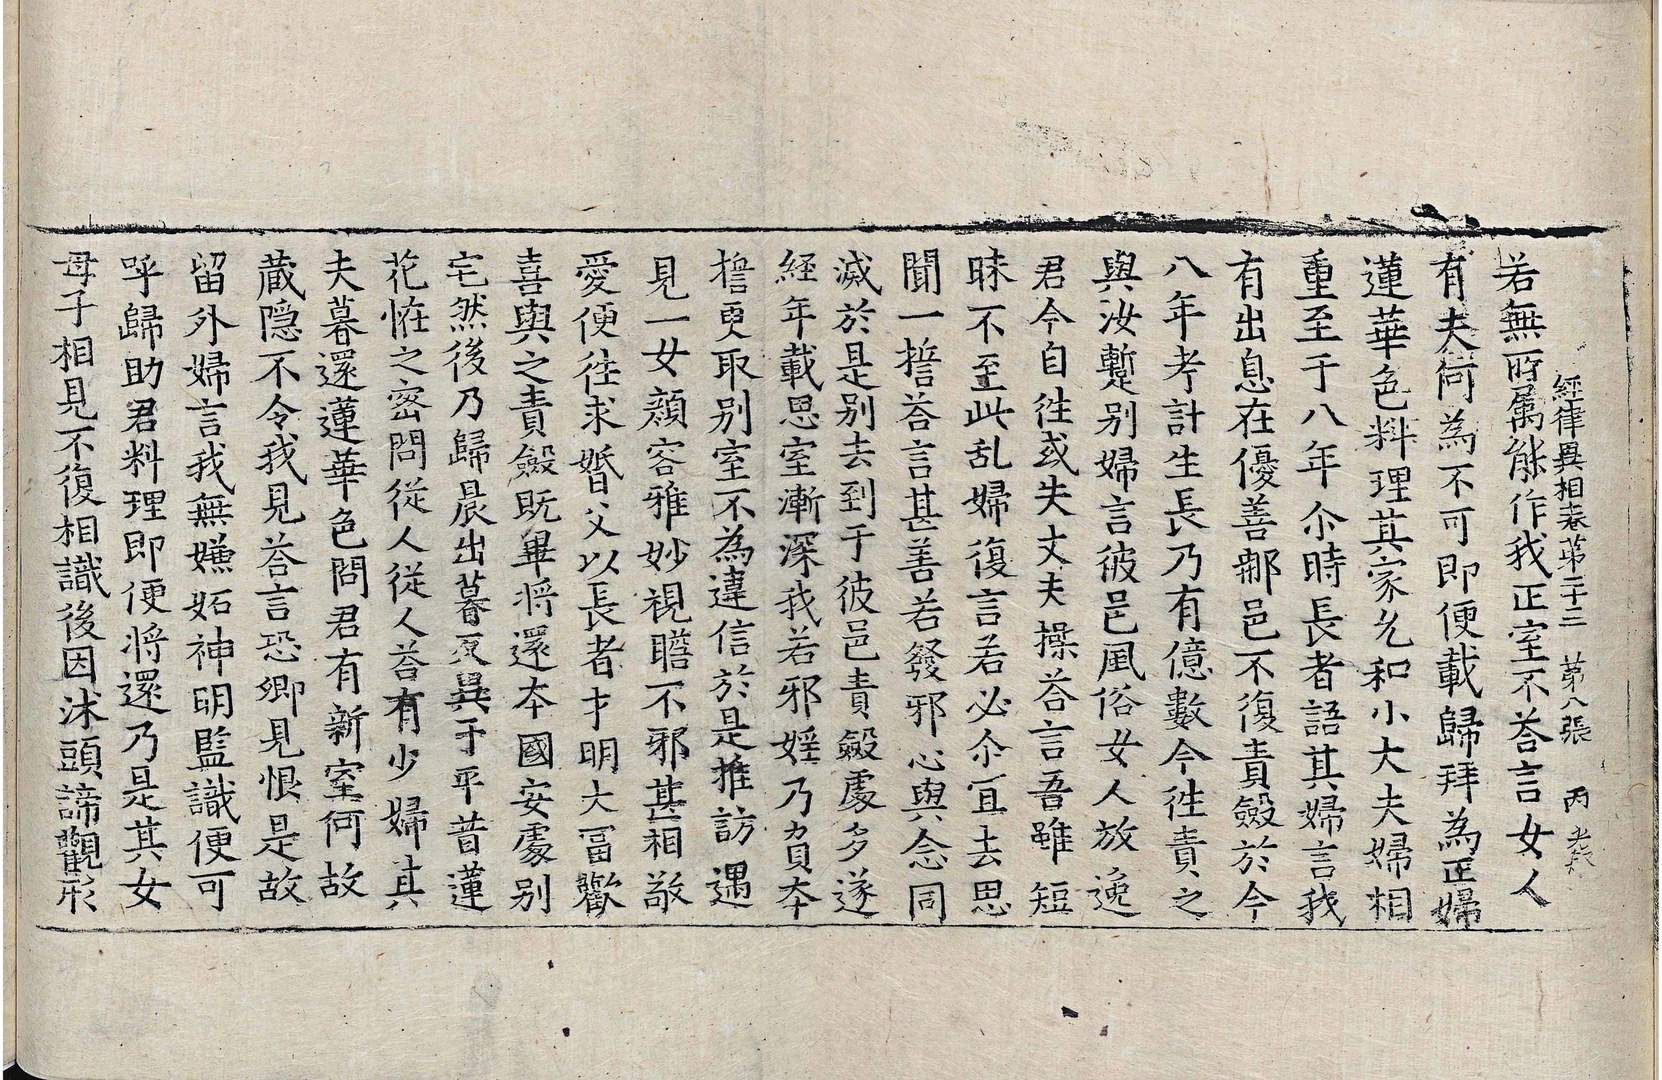 經律異相卷第二十三 第八張 丙
若無所属能作我正室不荅言女人
有夫何為不可即便載歸拜為正婦
蓮華色料理其家允和小大夫婦相
重至于八年尒時長者語其婦言我
有出息在優善那邑不復責斂於今
八年考計生長乃有億數今徃責之
與汝蹔别婦言彼邑風俗女人放逸
君今自徃或失丈夫操荅言吾雖短
昧不至此乱婦復言若必尒宜去思
聞一誓荅言甚善若發邪心與念同
滅於是别去到于彼邑責斂處多遂
経年載思室漸深我若邪婬乃負本
誓更取别室不為違信於是推訪遇
見一女顔容雅妙視瞻不邪甚相敬
愛便徃求婚父以長者才明大冨歡
喜與之責斂既畢將還本國安處别
宅然後乃歸晨出暮反異于平昔蓮
花恠之密問從人從人荅有少婦其
夫暮還蓮華色問君有新室何故
藏隠不令我見荅言恐卿見恨是故
留外婦言我無嫌妬神明監識便可
呼歸助君料理即便將還乃是其女
母子相見不復相識後因沐頭諦觀形